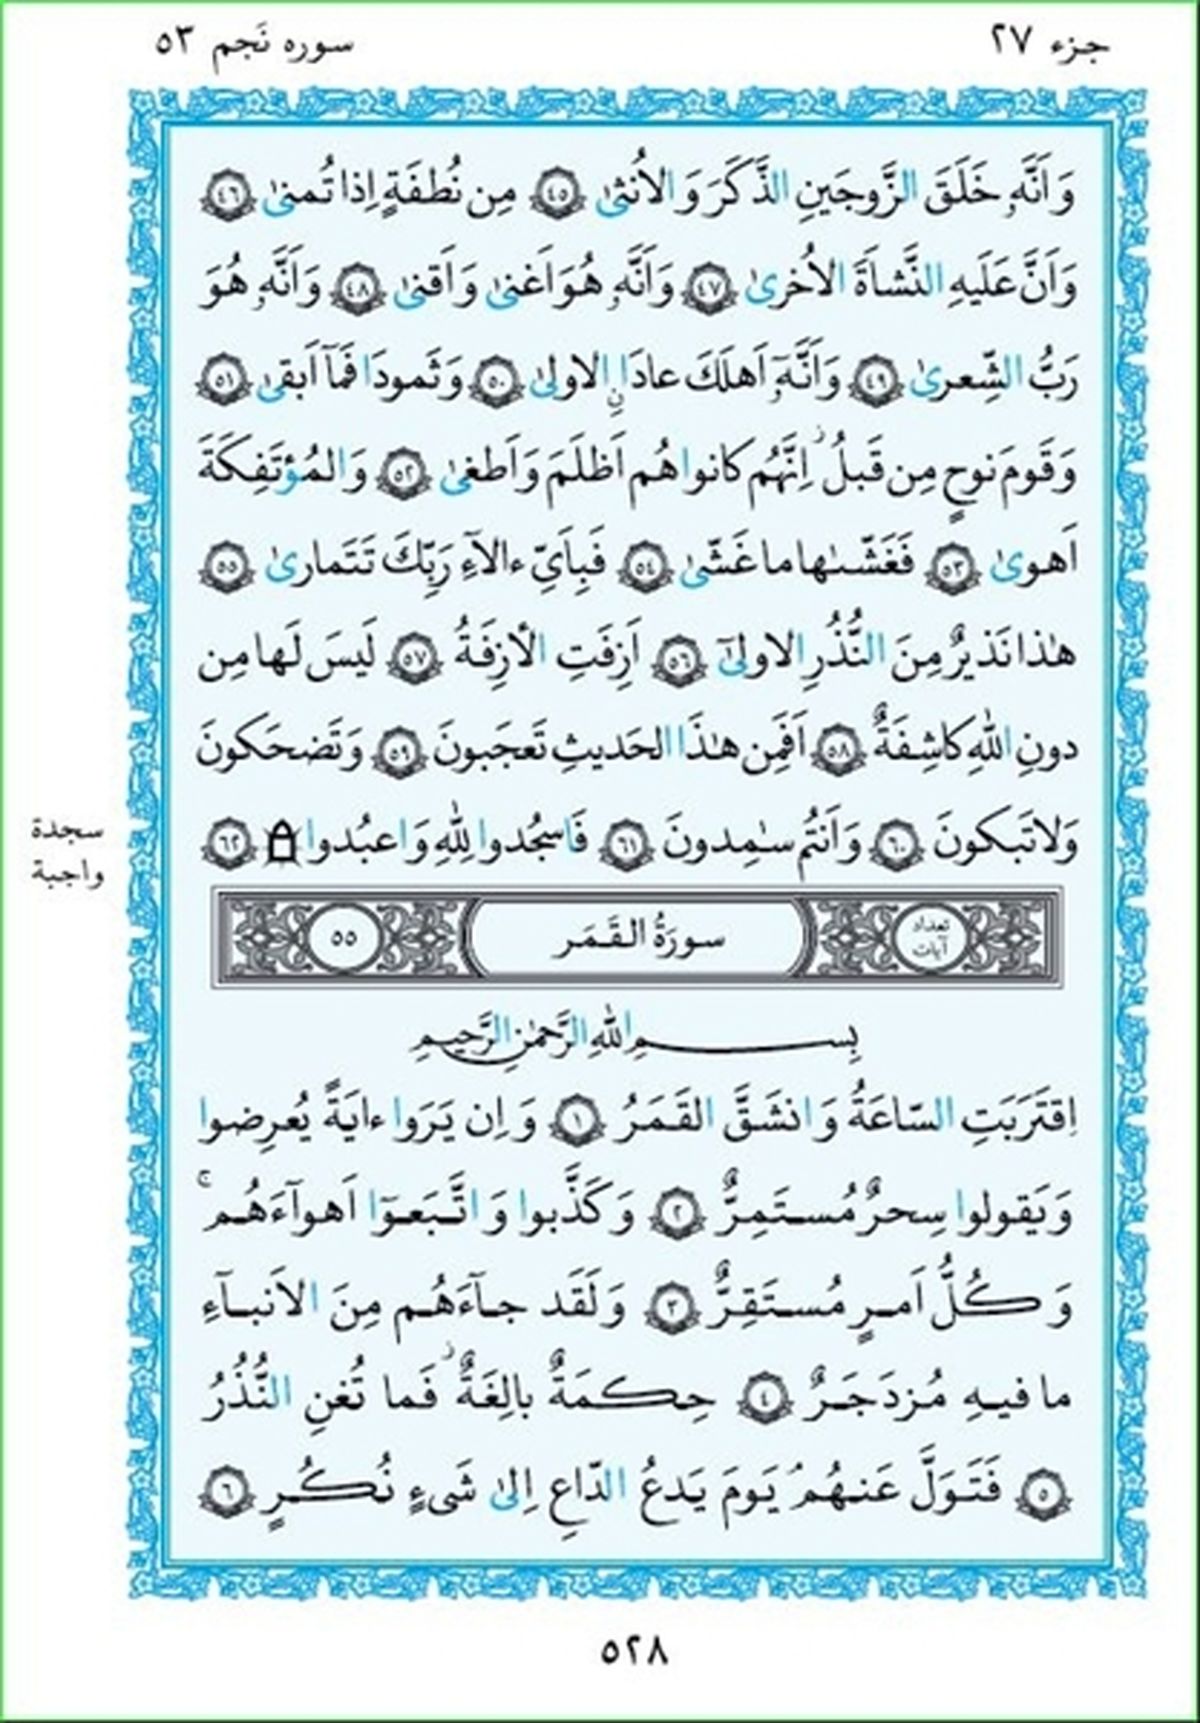 جزء ۲۷
سوره نَجم ۵۳
وَ اَنَّهٗ خَلَقَ الزَّوجَينِ الذَّكَرَ وَ الاُنثىٰ ﴿٤٥﴾ مِن نُطفَةٍ اِذا تُمنىٰ ﴿٤٦﴾
وَ اَنَّ عَلَيهِ النَّشاَةَ الاُخرىٰ ﴿٤٧﴾ وَ اَنَّهٗ هُوَ اَغنىٰ وَ اَقنىٰ ﴿٤٨﴾ وَ اَنَّهٗ هُوَ
رَبُّ الشِّعرىٰ ﴿٤٩﴾ وَ اَنَّهٗٓ اَهلَكَ عادًانِ الاولىٰ ﴿٥٠﴾ وَ ثَمودَا فَمآ اَبقىٰ ﴿٥١﴾
وَ قَومَ نوحٍ مِن قَبلُ ۖ اِنَّهُم كانوا هُم اَظلَمَ وَ اَطغىٰ ﴿٥٢﴾ وَ المُؤتَفِكَةَ
اَهوىٰ ﴿٥٣﴾ فَغَشّىٰها ما غَشّىٰ ﴿٥٤﴾ فَبِاَىِّ ءالآءِ رَبِّكَ تَتَمارىٰ ﴿٥٥﴾
هٰذا نَذيرٌ مِنَ النُّذُرِ الاولىٰٓ ﴿٥٦﴾ اَزِفَتِ الأزِفَةُ ﴿٥٧﴾ لَيسَ لَها مِن
دونِ اللهِ كاشِفَةٌ ﴿٥٨﴾ اَفَمِن هٰذَا الحَديثِ تَعجَبونَ ﴿٥٩﴾ وَ تَضحَكونَ
وَ لا تَبكونَ ﴿٦٠﴾ وَ اَنتُم سٰمِدونَ ﴿٦١﴾ فَاسجُدوا لِلّٰهِ وَ اعبُدوا ۩ ﴿٦٢﴾
سجدة
واجبة
تعداد آيات
سورَةُ القَمَر
٥٥
بِسمِ اللهِ الرَّحمٰنِ الرَّحيمِ
اِقتَرَبَتِ السّاعَةُ وَ انشَقَّ القَمَرُ ﴿١﴾ وَ اِن يَرَوا ءايَةً يُعرِضوا
وَ يَقولوا سِحرٌ مُستَمِرٌّ ﴿٢﴾ وَ كَذَّبوا وَ اتَّبَعوٓا اَهوآءَهُم ۚ
وَ كُلُّ اَمرٍ مُستَقِرٌّ ﴿٣﴾ وَ لَقَد جآءَهُم مِنَ الاَنبآءِ
ما فيهِ مُزدَجَرٌ ﴿٤﴾ حِكمَةٌ بالِغَةٌ ۖ فَما تُغنِ النُّذُرُ
﴿٥﴾ فَتَوَلَّ عَنهُم ۘ يَومَ يَدعُ الدّاعِ اِلىٰ شَىءٍ نُكُرٍ ﴿٦﴾
۵۲۸